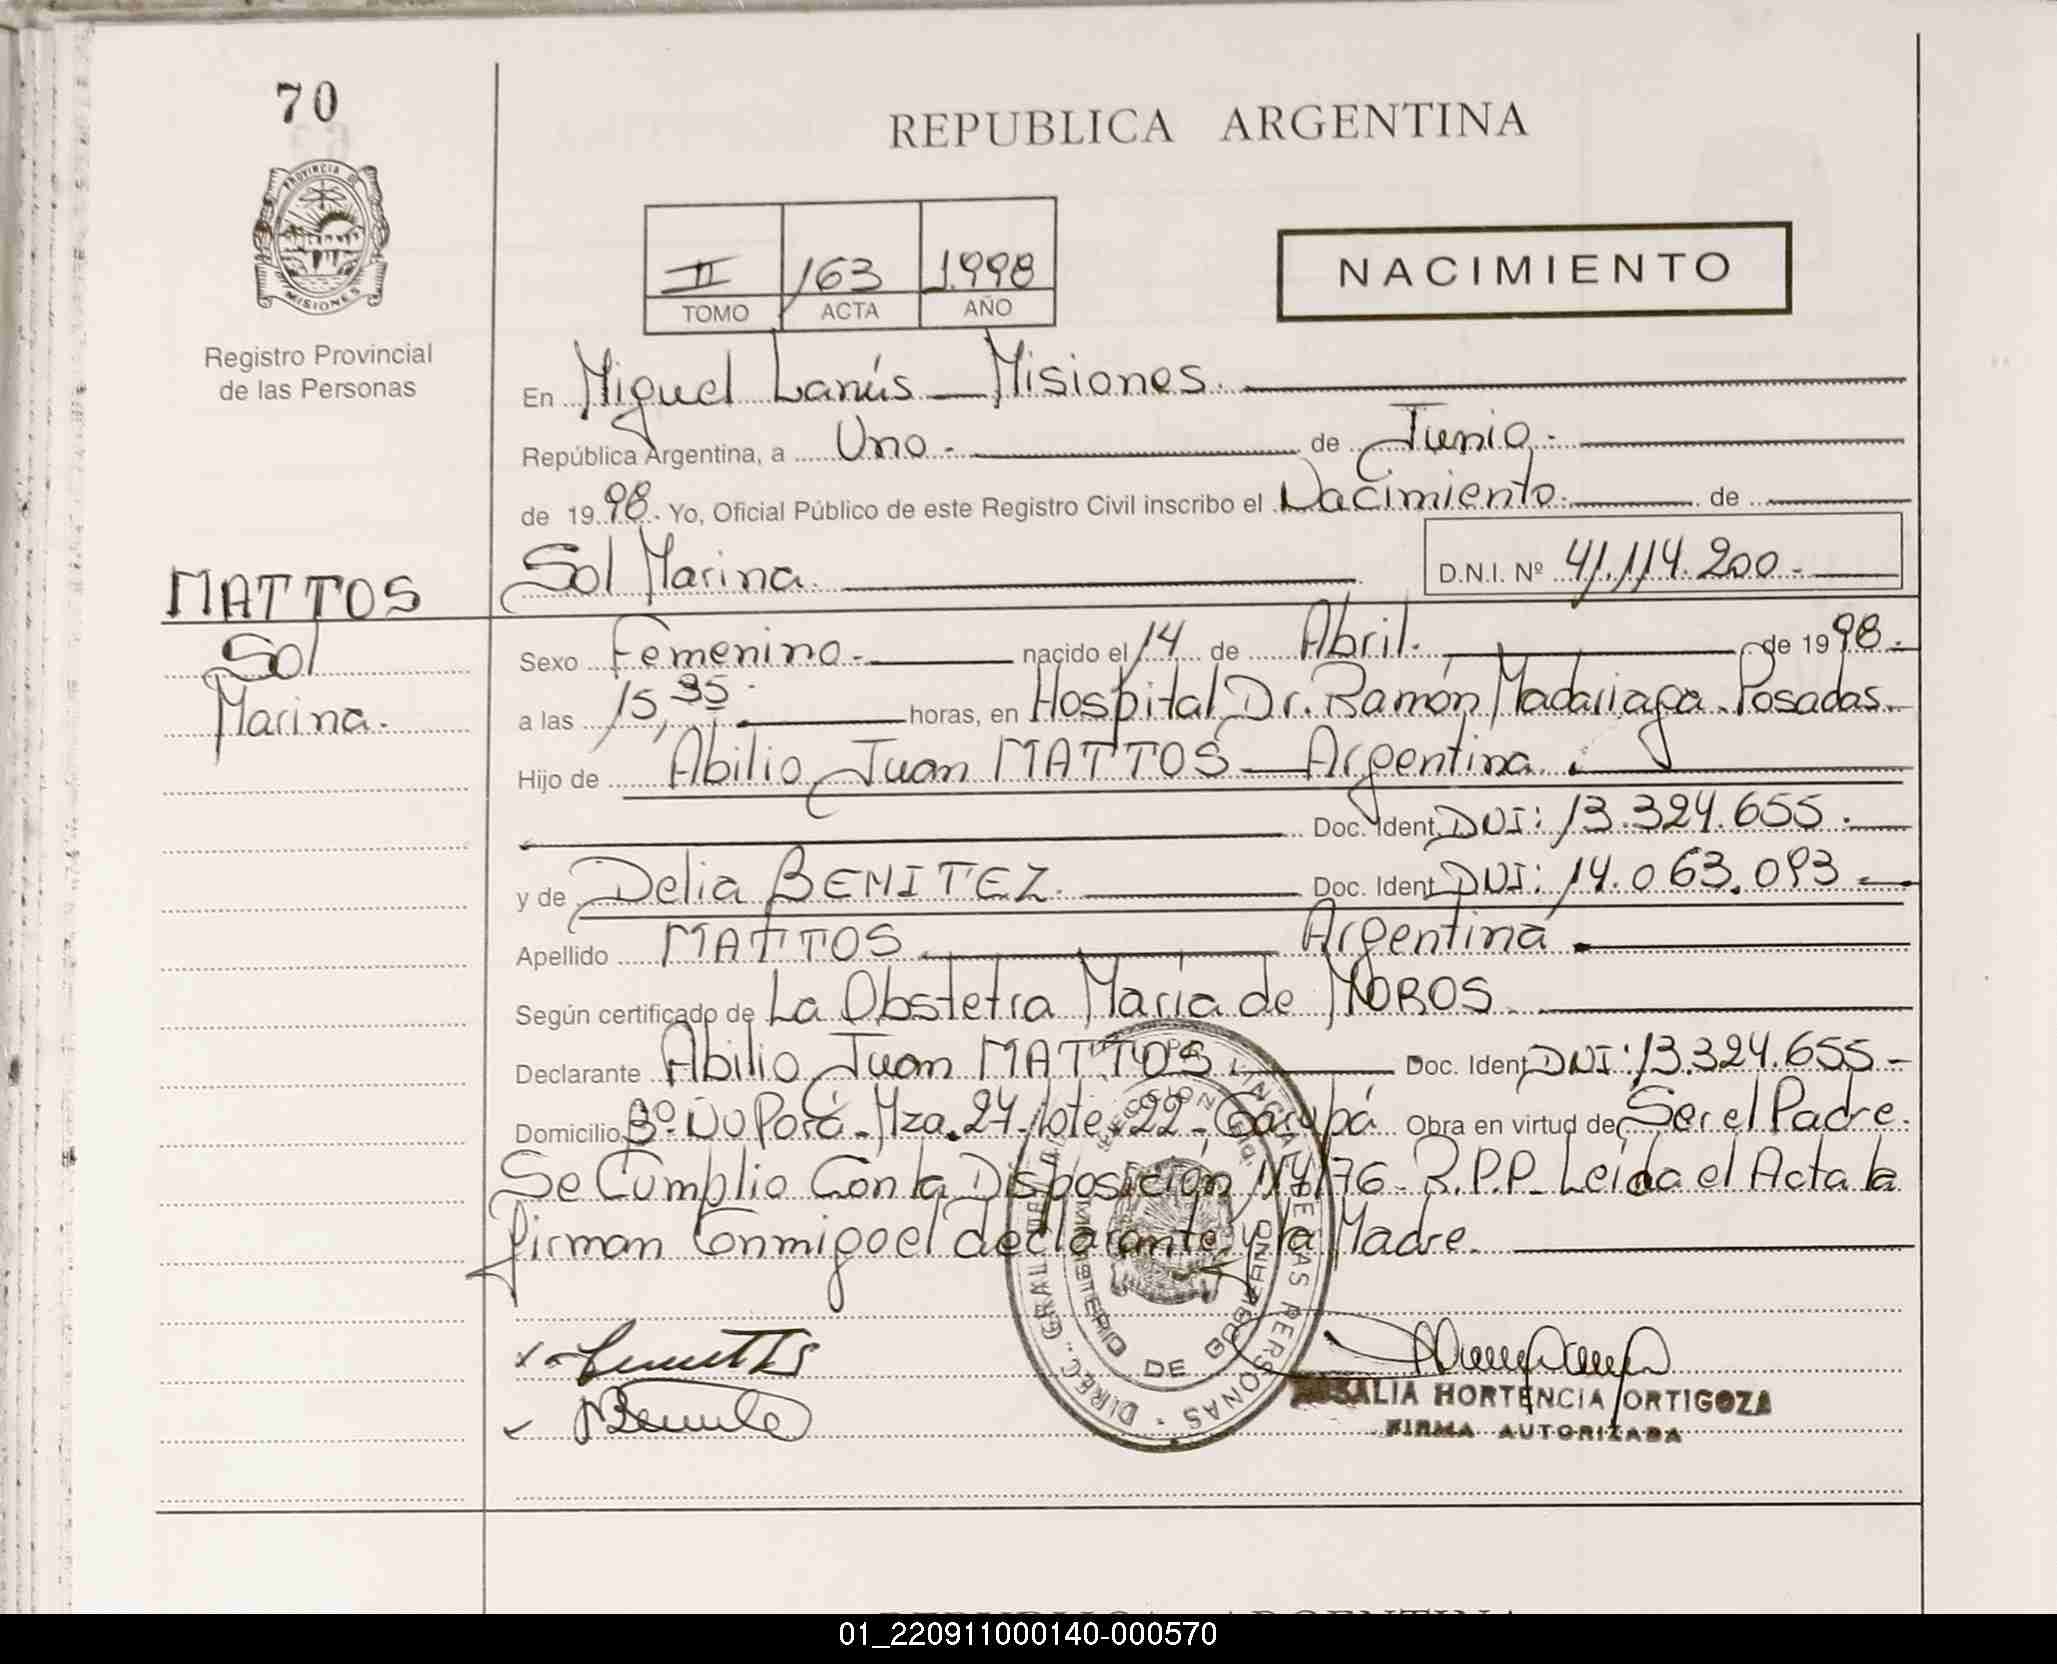 70
REPUBLICA ARGENTINA
PROVINCIA DE
MISIONES
Registro Provincial
de las Personas
II 163 1.998
TOMO ACTA AÑO
NACIMIENTO
En Miguel Lanús - Misiones.
República Argentina, a Uno - de Junio -
de 1998. Yo, Oficial Público de este Registro Civil inscribo el Nacimiento. de
MATTOS
Sol
Marina.
Sol Marina. D.N.I. Nº 41.114.200 -
Sexo Femenino - nacido el 14 de Abril. de 1998.
a las 15,35 horas, en Hospital Dr. Ramón Madariaga - Posadas.
Hijo de Abilio Juan MATTOS - Argentina.
Doc. Ident. DNI: 13.324.655.
y de Delia BENITEZ. Doc. Ident. DNI: 14.063.093.
Apellido MATTOS Argentina
Según certificado de La Obstetra María de MOROS.
Declarante Abilio Juan MATTOS. Doc. Ident. DNI: 13.324.655 -
Domicilio Bº. Ñu Porá - Mza. 27 - lote 22 - Garupá Obra en virtud de Ser el Padre.
Se Cumplio Con la Disposición 114/76 - R.P.P. Leída el Acta la
firman Conmigo el declarante y la Madre.
DIREC. GRAL. DE LAS PERSONAS
MINISTERIO DE GOBIERNO
ROSALIA HORTENCIA ORTIGOZA
FIRMA AUTORIZADA
REPUBLICA ARGENTINA
01_220911000140-000570